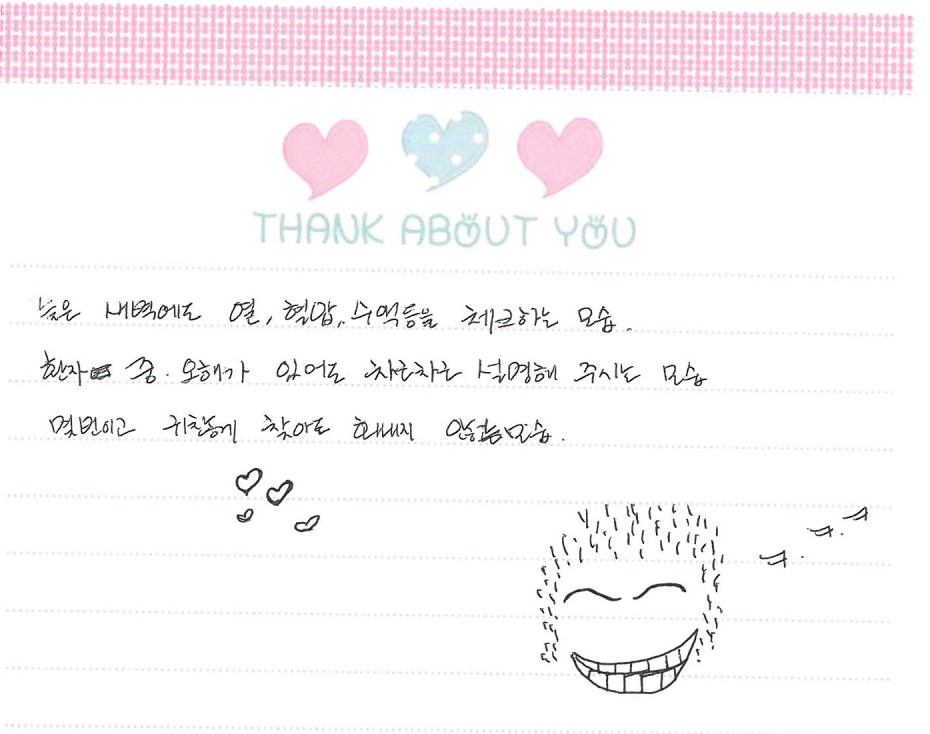 THANK ABOUT YOU
늦은 새벽에도 열, 혈압, 수액등을 체크하는 모습.
환자 중. 오해가 있어도 차근차근 설명해 주시는 모습
몇번이고 귀찮게 찾아도 화내지 않는모습.
ㅋ. ㅋ. ㅋ